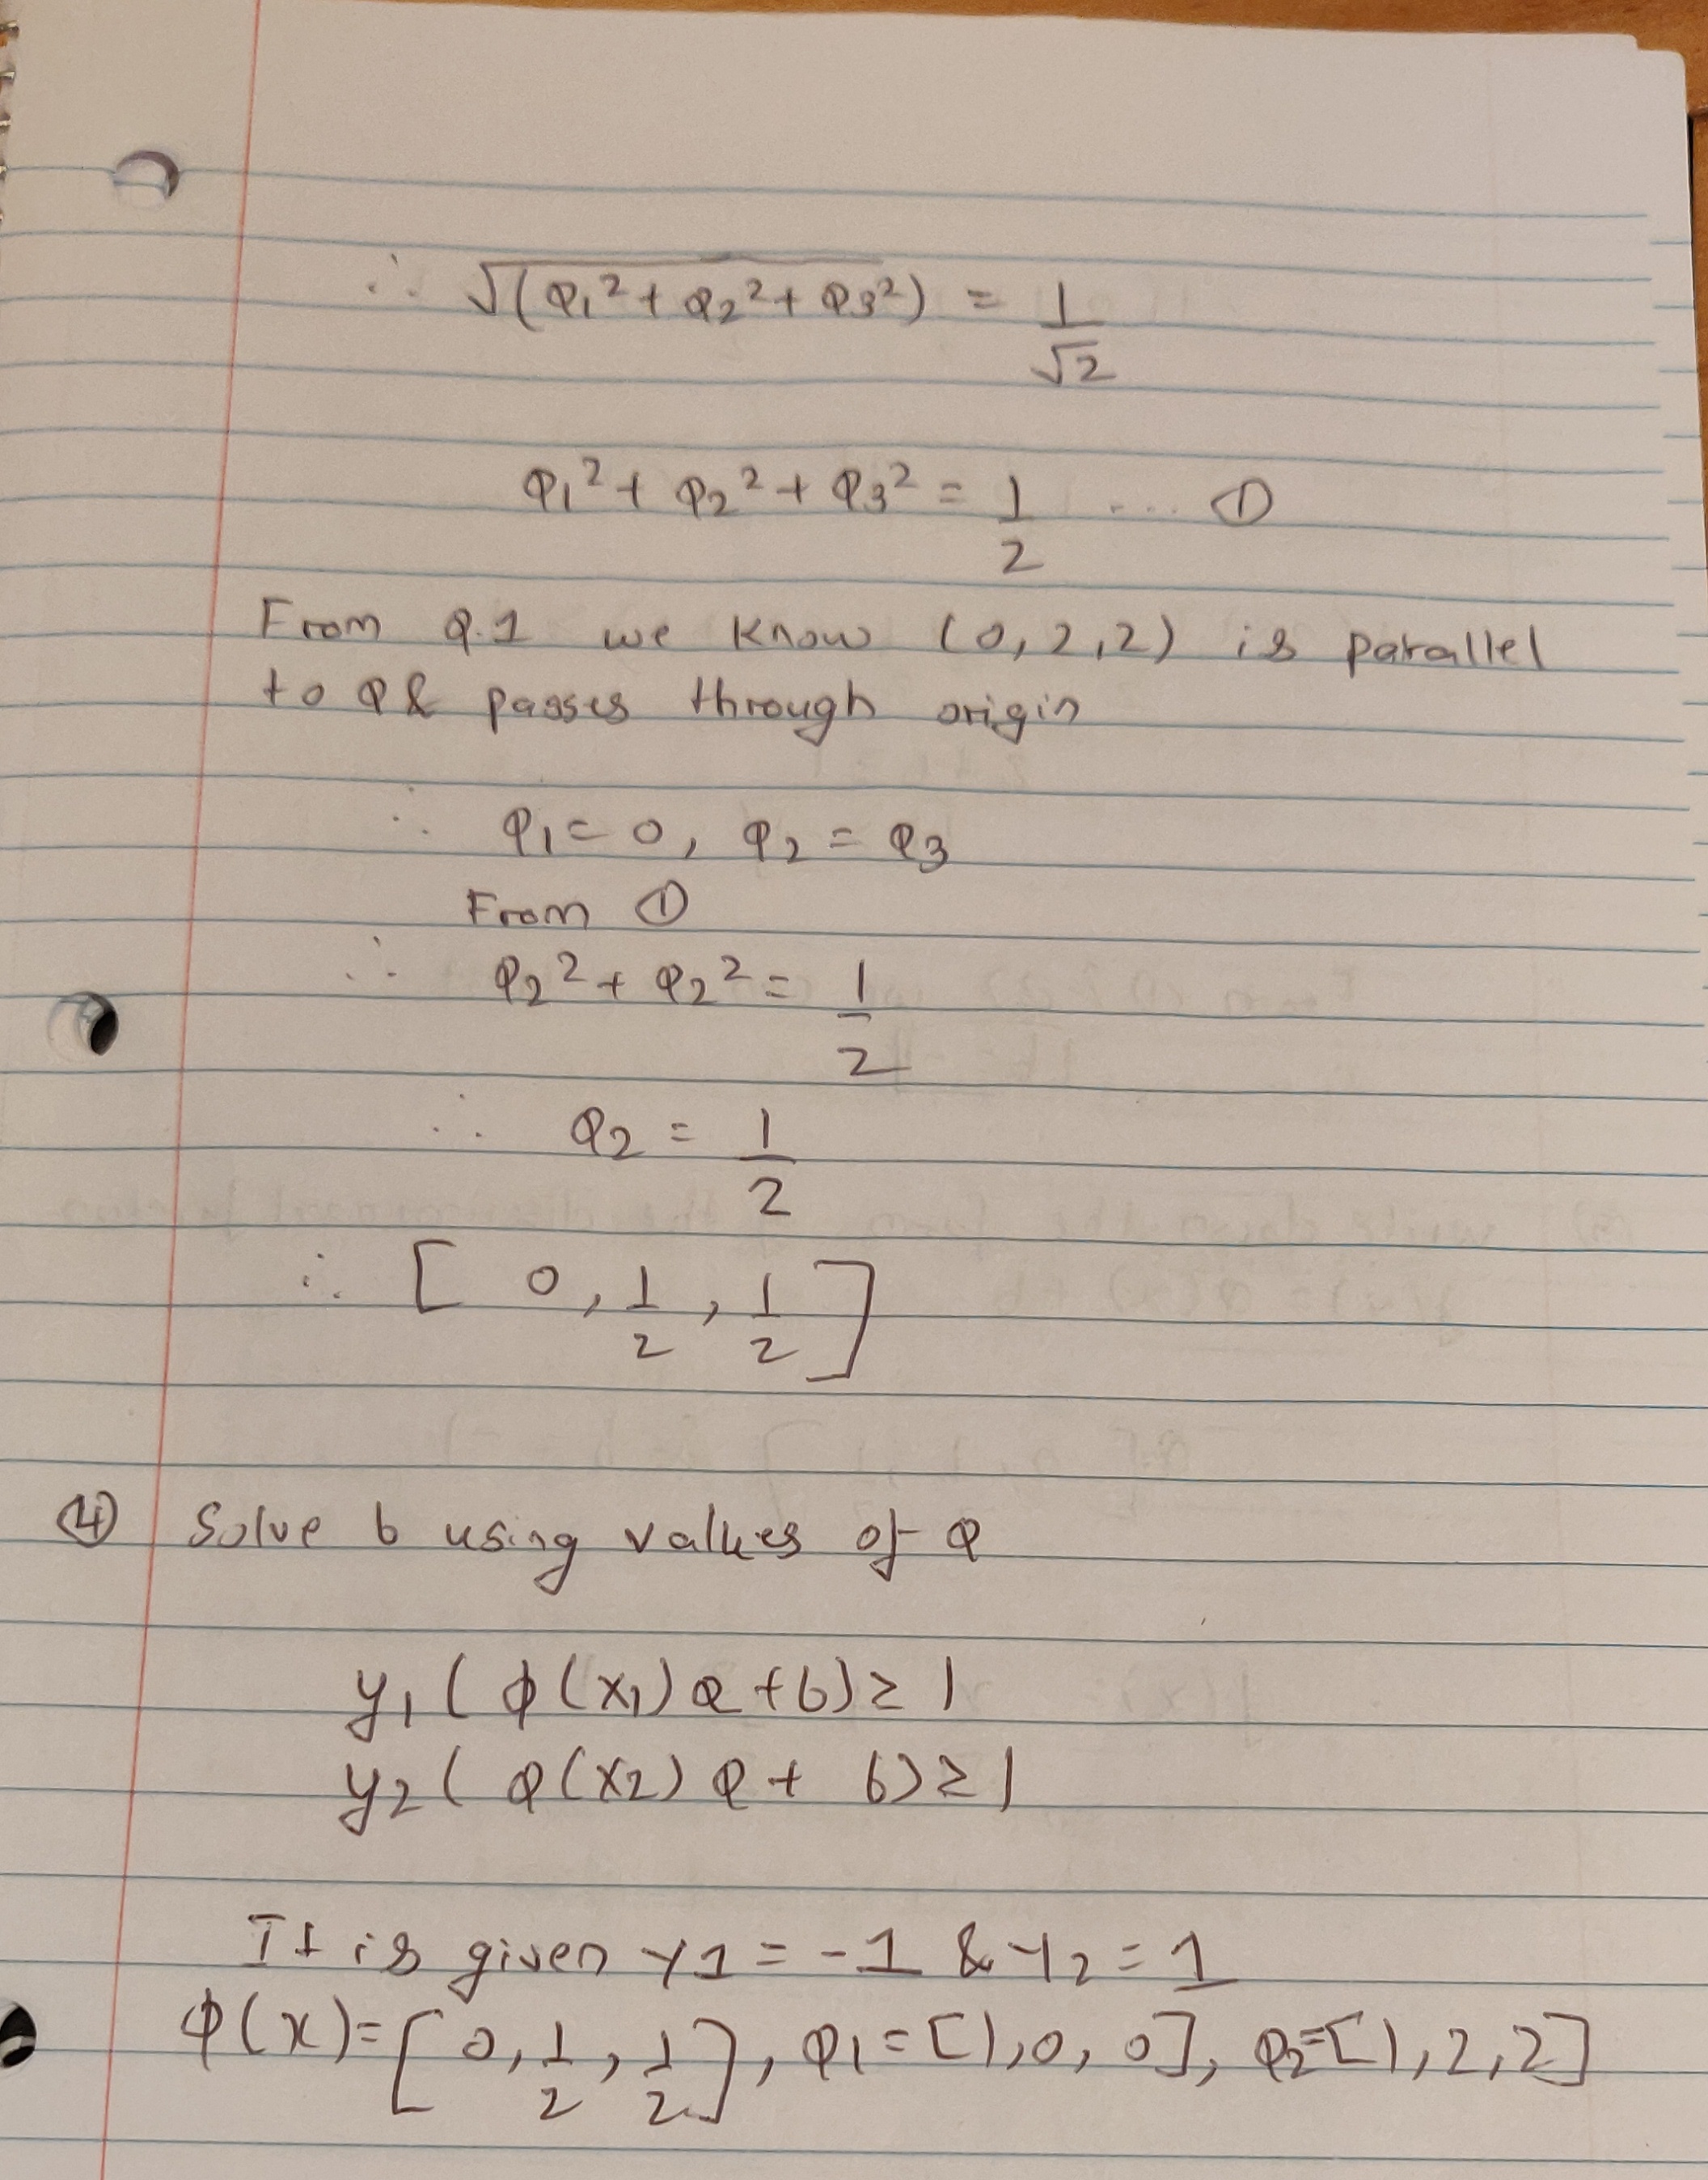 ∴ √(Q₁² + Q₂² + Q₃²) = 1/√2
Q₁² + Q₂² + Q₃² = 1/2 ... ①
From Q.1 we know (0,2,2) is parallel
to Q & passes through origin
∴ Q₁ = 0, Q₂ = Q₃
From ①
∴ Q₂² + Q₂² = 1/2
∴ Q₂ = 1/2
∴ [ 0, 1/2, 1/2 ]
④ Solve b using values of Q
y₁ ( ϕ(x₁) Q + b) ≥ 1
y₂ ( Q(x₂) Q + b) ≥ 1
It is given Y1 = -1 & Y₂ = 1
ϕ(x) = [ 0, 1/2, 1/2 ], Q₁ = [1, 0, 0], Q₂ = [1, 2, 2]